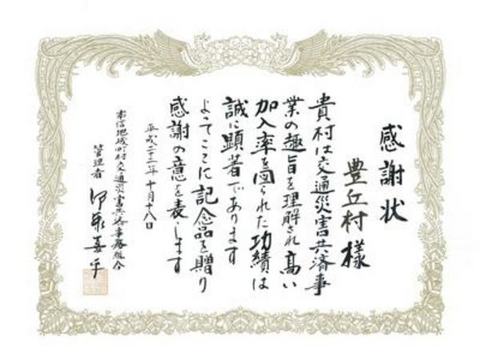 感謝状
豊丘村様
貴村は交通災害共済事
業の趣旨を理解され高い
加入率を図られた功績は
誠に顕著であります
よってここに記念品を贈り
感謝の意を表します
平成二十二年十月十八日
南信地域町村交通災害共済事務組合
管理者